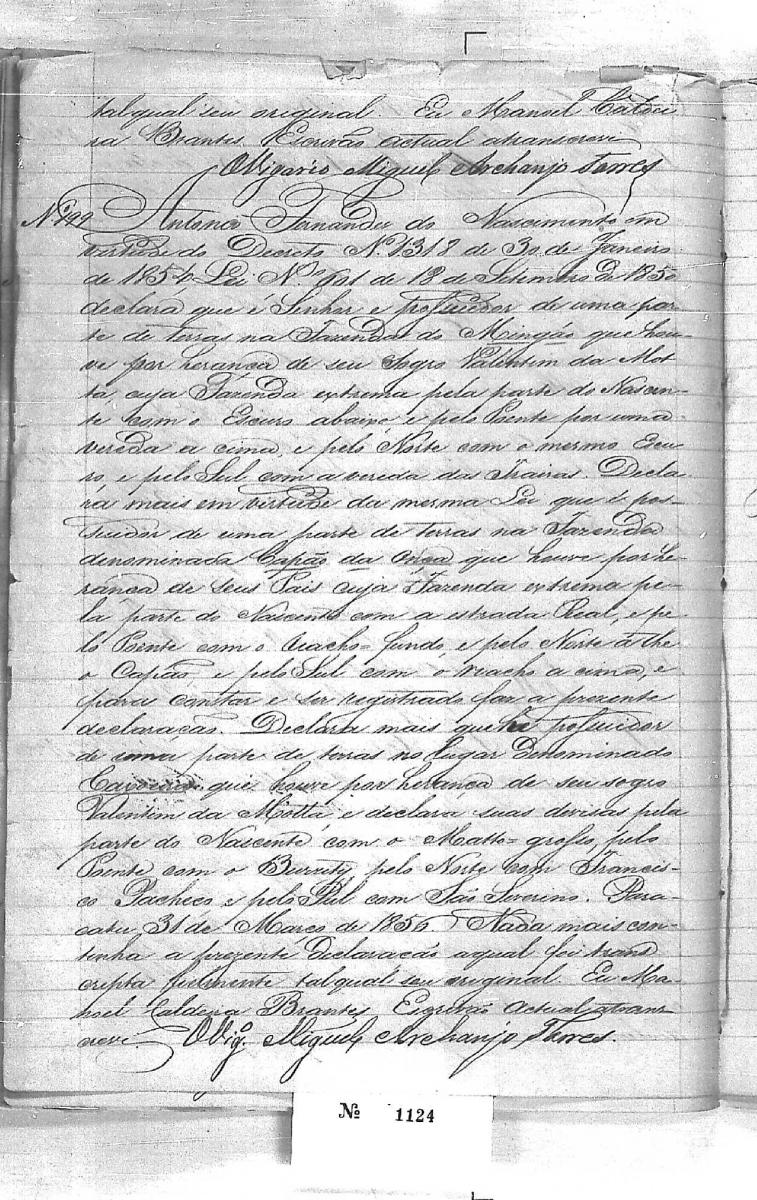 tal qual seu original Eu Manoel Caldei
ra Brantes Escrivão actual atranscrevi
OVigario Miguel Archanjo Torres
Nº199 Antonio Fernandes do Nascimento em
virtude do Decreto Nº1318 de 30 de Janeiro
de 1854 Lei Nº 601 de 18 de Setembro de 1850
declara que é Senhor e possuidor de uma par
te de terras na Fazenda do Mingão que hou-
ve por herança de seu Sogro Valintim da Mot
ta, cuja Fazenda extrema pela parte do Nascen-
te com o Escuro abaixo e pelo Poente por uma
vereda a cima, e pelo Norte com o mesmo Escu-
ro, e pelo Sul com a vereda das Trairas. Decla
ra mais em virtude da mesma Lei que é pos-
suidor de uma parte de terras na Fazenda
denominada Capão da Onça que houve por he
rança de seus Pais cuja Fazenda extrema pe-
la parte do Nascente com a estrada Real, e pe-
lo Poente com o riacho=fundo, e pelo Norte athe
o Capão, e pelo Sul com o riacho a cima, e
para constar e ser registrado faz a prezente
declaração. Declara mais que he possuidor
de uma parte de terras no lugar Denominado
que houve por herança de seu sogro
Valentim da Motta, e declara suas devisas pela
parte do Nascente com o Matto=grosso, pelo
Poente com o Burrity, pelo Norte com Francis-
co Pacheco, e pelo Sul com São Severino. Para-
catu, 31 de Março de 1856 Nada mais con-
tinha a prezente Declaração aqual foi trans
cripta fielmente tal qual seu original. Eu Ma-
noel Caldeira Brantes Escrivão Actual atrans
crevi. OVigº Miguel Archanjo Torres.
Nº 1124